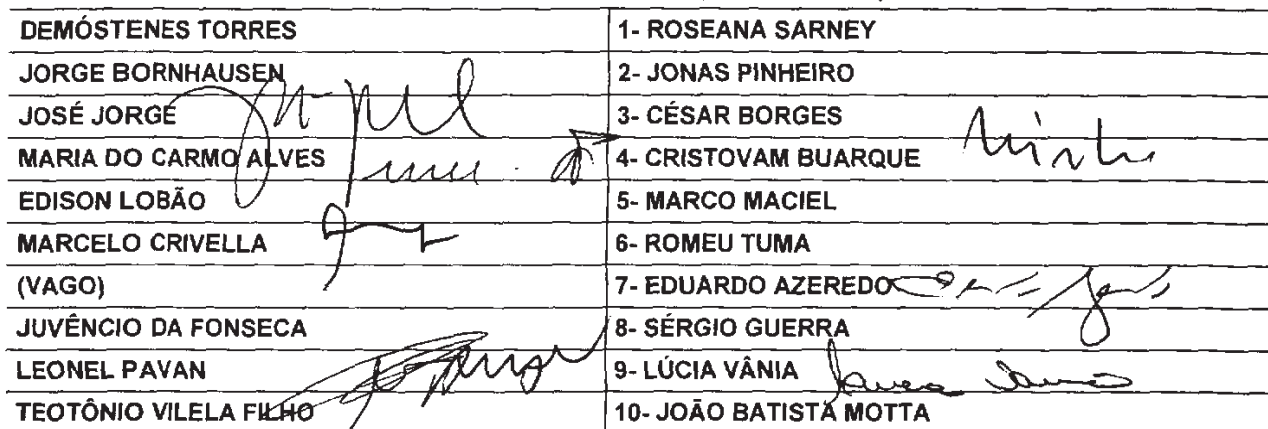 DEMÓSTENES TORRES 1- ROSEANA SARNEY
JORGE BORNHAUSEN 2- JONAS PINHEIRO
JOSÉ JORGE 3- CÉSAR BORGES
MARIA DO CARMO ALVES 4- CRISTOVAM BUARQUE
EDISON LOBÃO 5- MARCO MACIEL
MARCELO CRIVELLA 6- ROMEU TUMA
(VAGO) 7- EDUARDO AZEREDO
JUVÊNCIO DA FONSECA 8- SÉRGIO GUERRA
LEONEL PAVAN 9- LÚCIA VÂNIA
TEOTÔNIO VILELA FILHO 10- JOÃO BATISTA MOTTA